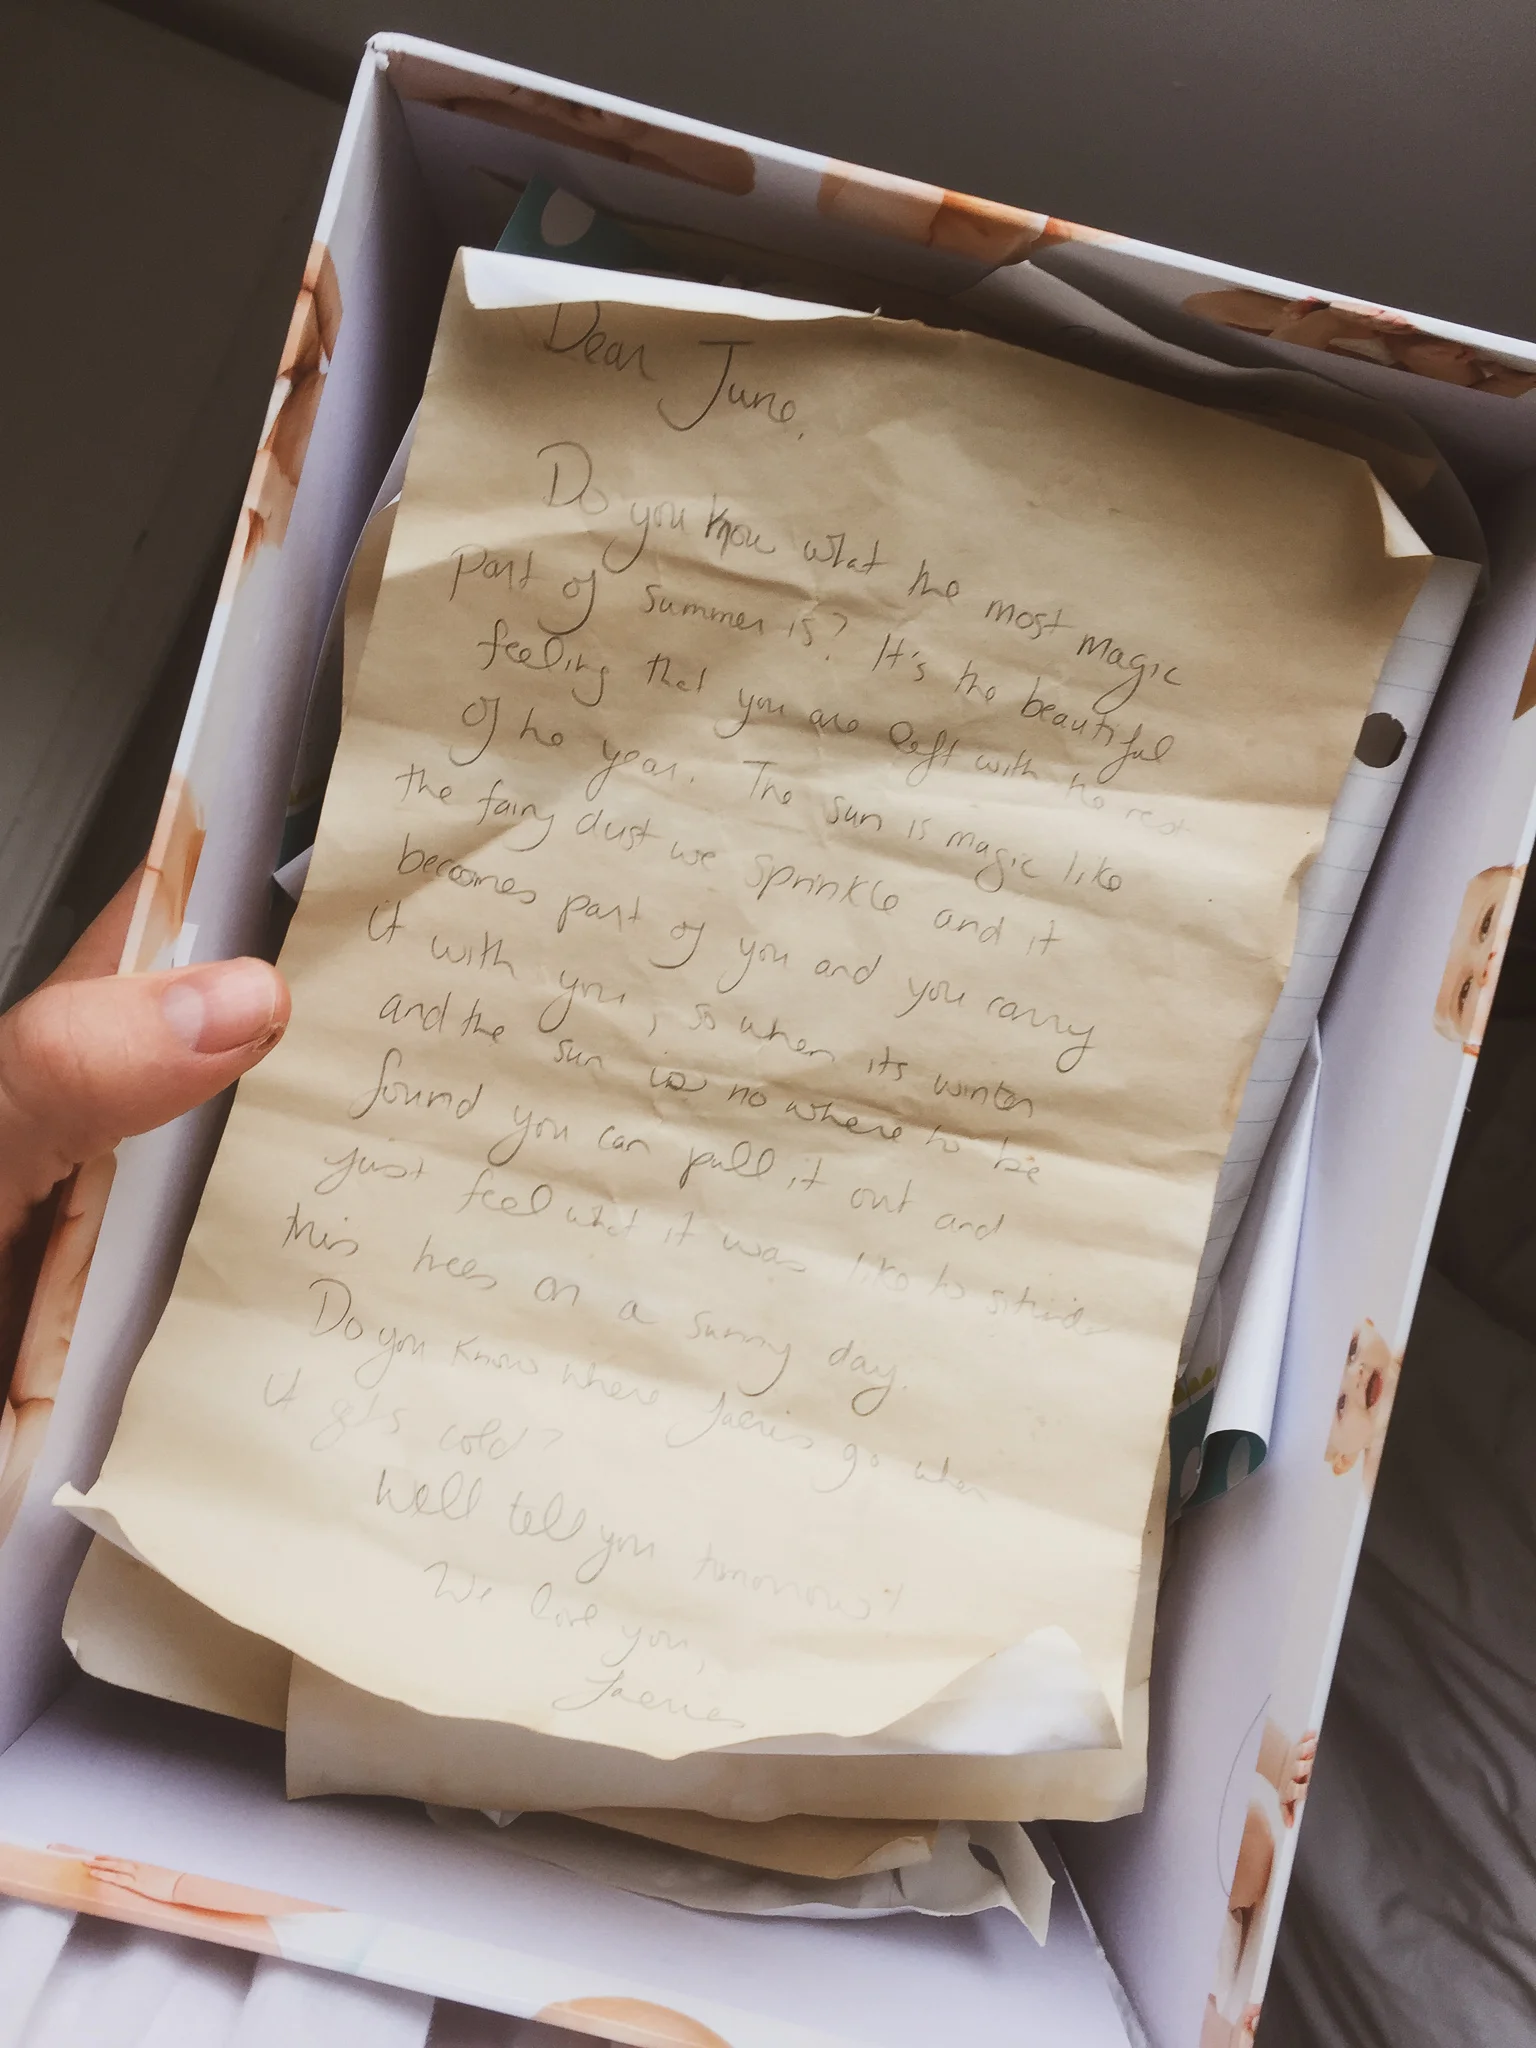 Dear June,
Do you know what the most magic
part of summer is? It's the beautiful
feeling that you are left with the rest
of the year. The sun is magic like
the fairy dust we sprinkle and it
becomes part of you and you carry
it with you, so when its winter
and the sun is no where to be
found you can pull it out and
just feel what it was like to sit
this trees on a sunny day.
Do you know where faeries go when
it gets cold?
Well tell you tomorrow!
We love you,
Faeries